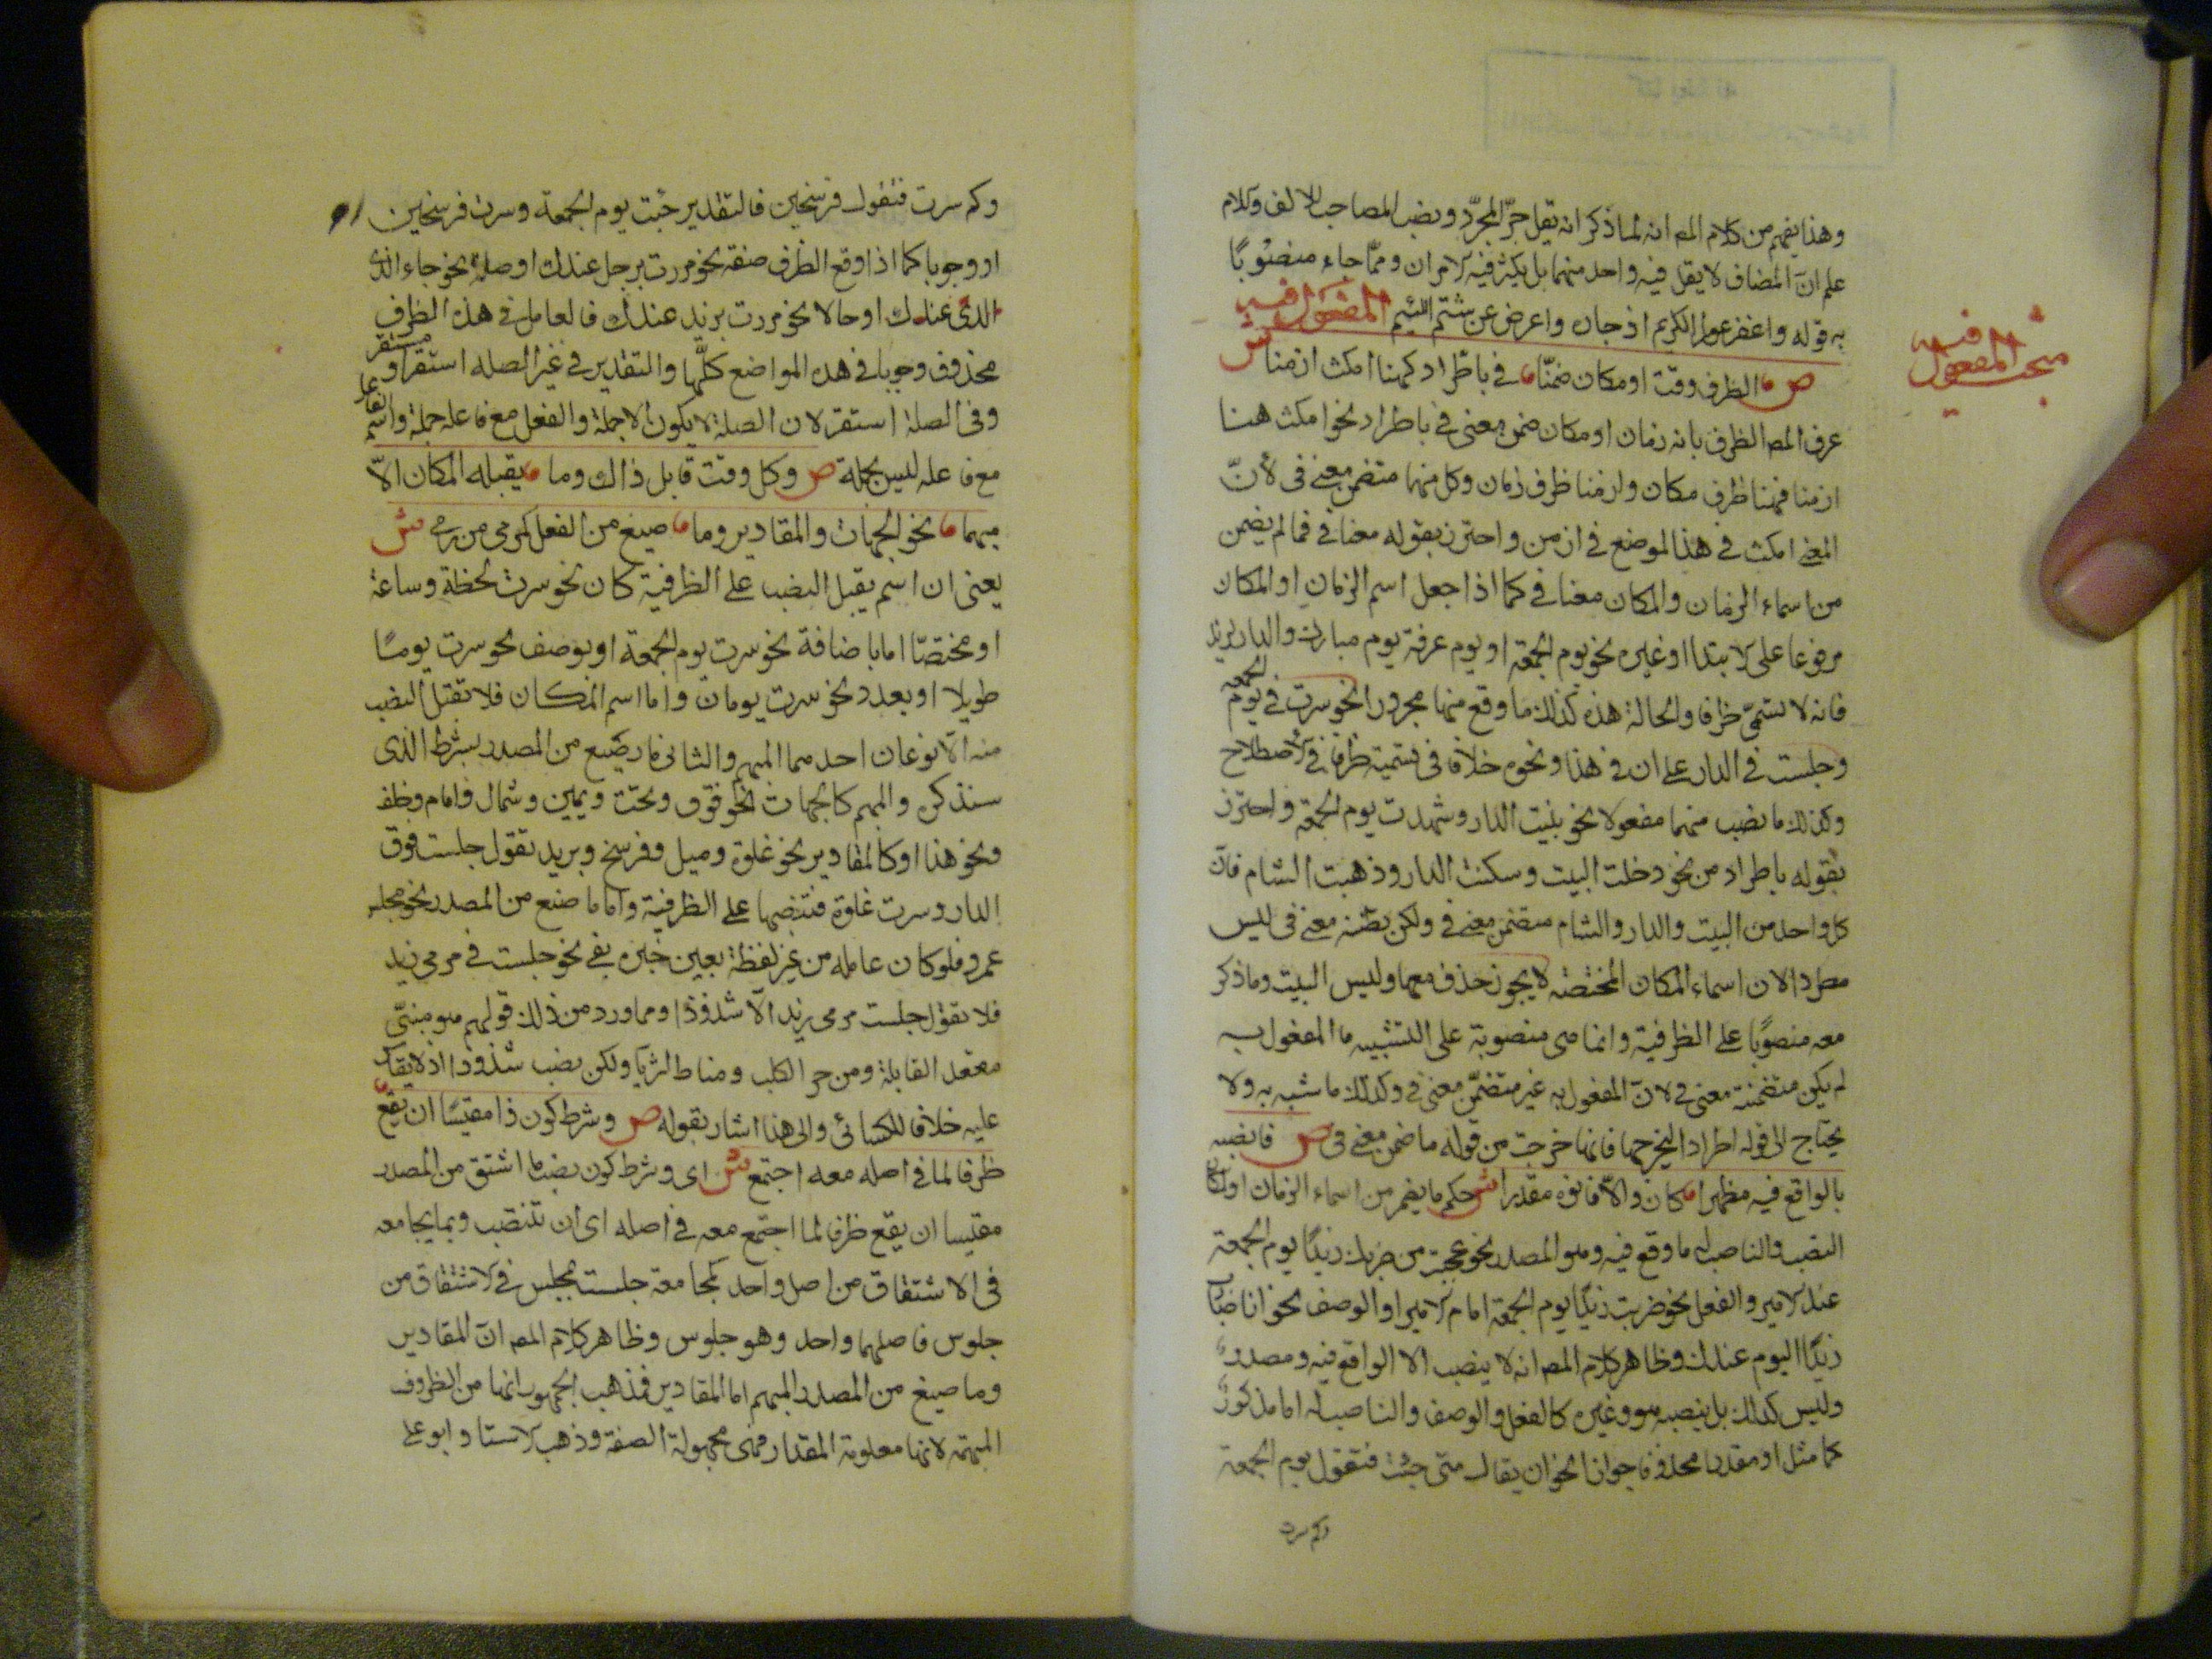 وهذا يفهم من كلام المص انه لما ذكر انه يقل جرّ المجرّد ونصب المصاحب للالف وللام
علم انّ المضاف لا يقل فيه واحد منهما بل يكثر فيه الامران وممّا جاء منصوبًا
به قوله واغفر عوراء الكريم ادخاره واعرض عن شتم اللئيم المفعول فيه
مبحث المفعول فيه
ص الظرف وقت او مكان ضمّنا في باطّراد كهنا امكث ازمنا ش
عرف المص الظرف بانه زمان او مكان ضمن معنى في باطراد نحو امكث هنا
ازمنا فهنا ظرف مكان وازمنا ظرف زمان وكل منهما متضمن معنى في لأنّ
المعنى امكث في هذا الموضع في ازمن واحترز بقوله معنا في فما لم يضمن
من اسماء الزمان والمكان معنا في كما اذا جعل اسم الزمان او المكان
مرفوعا على الابتدا او غيره نحو يوم الجمعة او يوم عرفة يوم مبارك والدار لزيد
فانه لا يسمّى ظرفا والحالة هذه كذلك ما وقع منهما مجرورا نحو سرت في يوم الجمعه
وجلست في الدار على ان في هذا ونحوه خلافا في تسميته ظرفا في الاصطلاح
وكذلك ما نصب منهما مفعولا نحو بنيت الدار وشهدت يوم الجمعة واحترز
بقوله باطراد من نحو دخلت البيت وسكنت الدار وذهبت الشام فانّ
كل واحد من البيت والدار والشام متضمن معنى في ولكن تضمنه معنى في ليس
مطردا لان اسماء المكان المختصّة لا يجوز حذف في معها وليس البيت وما ذكر
معه منصوبًا على الظرفية وانما هي منصوبة على التشبيه بالمفعول به
لم يكن متضمنة معنى في لانّ المفعول به غير متضمّن معنى في وكذلك ما شبه به ولا
يحتاج الى قوله اطراد اليخرجها فانها خرجت من قوله ما ضمن معنى في ص فانصبه
بالواقع فيه مظهرا كان والاّ فانوه مقدّرا ش حكم ما يضمن من اسماء الزمان او المكان
النصب والناصب له ما وقع فيه وهو المصدر نحو عجبت من ضربك زيدًا يوم الجمعة
عند الامير والفعل نحو ضربت زيدًا يوم الجمعة امام الامير او الوصف نحو انا ضارب
زيدًا اليوم عندك وظاهر كلام المص انه لا ينصبه الا الواقع فيه ومصدره
وليس كذلك بل ينصبه هو وغيره كالفعل والوصف والناصب له اما مذكورٌ
كما مثل او مقدرا محذوفا جوازا نحو ان يقال متى جئت فتقول يوم الجمعة
وكم سرت
وكم سرت فتقول فرسخين فالتقدير جئت يوم الجمعة وسرت فرسخين
او وجوبا كما اذا وقع الظرف صفة نحو مررت برجل عندك او صلة نحو جاء الذى
الذى عندك او حالا نحو مررت بزيد عندك فالعامل في هذه الظرف
محذوف وجوبا في هذه المواضع كلّها والتقدير في غير الصله استقر او مستقر
وفي الصلة استقر لان الصلة لا يكون الا جملة والفعل مع فاعله جملة واسم الفاعل
مع فاعله ليس بجملة ص وكل وقت قابل ذاك وما يقبله المكان الاّ
مبهما نحو الجهات والمقادير وما صيغ من الفعل كرمى من رمى ش
يعنى ان اسم يقبل النصب على الظرفية كان نحو سرت لحظة وساعة
او مختصّا اما باضافة نحو سرت يوم الجمعة او بوصف نحو سرت يومًا
طويلا او بعدد نحو سرت يومان واما اسم المكان فلا تقبل النصب
منه الا نوعان احدهما المبهم والثانى ما صيغ من المصدر بشرط الذى
سنذكره والمبهم كالجهات نحو فوق وتحت ويمين وشمال وامام وخلف
ونحو هذا او كالمقادير نحو غلوة وميل وفرسخ وبريد تقول جلست فوق
الدار وسرت غلوة فتنصبها على الظرفية وامّا ما صيغ من المصدر نحو مجلس
عمرو فلو كان عامله من غير لفظه بعين جره بفى نحو جلست في مرمى زيد
فلا تقول جلست مرمى زيد الاّ شذوذا ومما ورد من ذلك قولهم هو منّى
مقعد القابلة ومزجر الكلب ومناط الثريّا ولكن نصب شذوذا اذ لا يقاس
عليه خلافا للكسائى والى هذا اشار بقوله ص وشرط كون ذا مقيسًا ان يقع
ظرفا لما في اصله معه اجتمع ش اى وشرط كون نصب ما اشتق من المصدر
مقيسا ان يقع ظرفا لما اجتمع معه في اصله اى ان تنتصب وبما يجامعه
في الاشتقاق من اصل واحد كمجامعة جلست بمجلس في الاشتقاق من
جلوس فاصلهما واحد وهو جلوس وظاهر كلام المص انّ المقادير
وما صيغ من المصدر المبهم اما المقادير فمذهب الجمهور انها من الظروف
المبهمة لانها معلومة المقدار فهى مجهولة الصفة وذهب الاستا وابو على